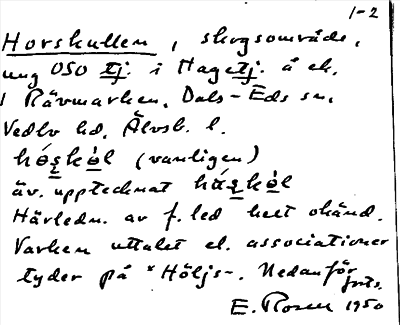 1-2
Horskullen, skogsområde,
ung OSO tj. i Hagetj. å ek.
i Rävmarken, Dals-Eds sn,
Vedbo hd, Älvsb. l.
(vanligen)
äv. upptecknat
Härledn. av f. led helt okänd.
Varken uttalet el. associationer
tyder på *Höljs-. Nedanför
forts.
E. Rosen 1950